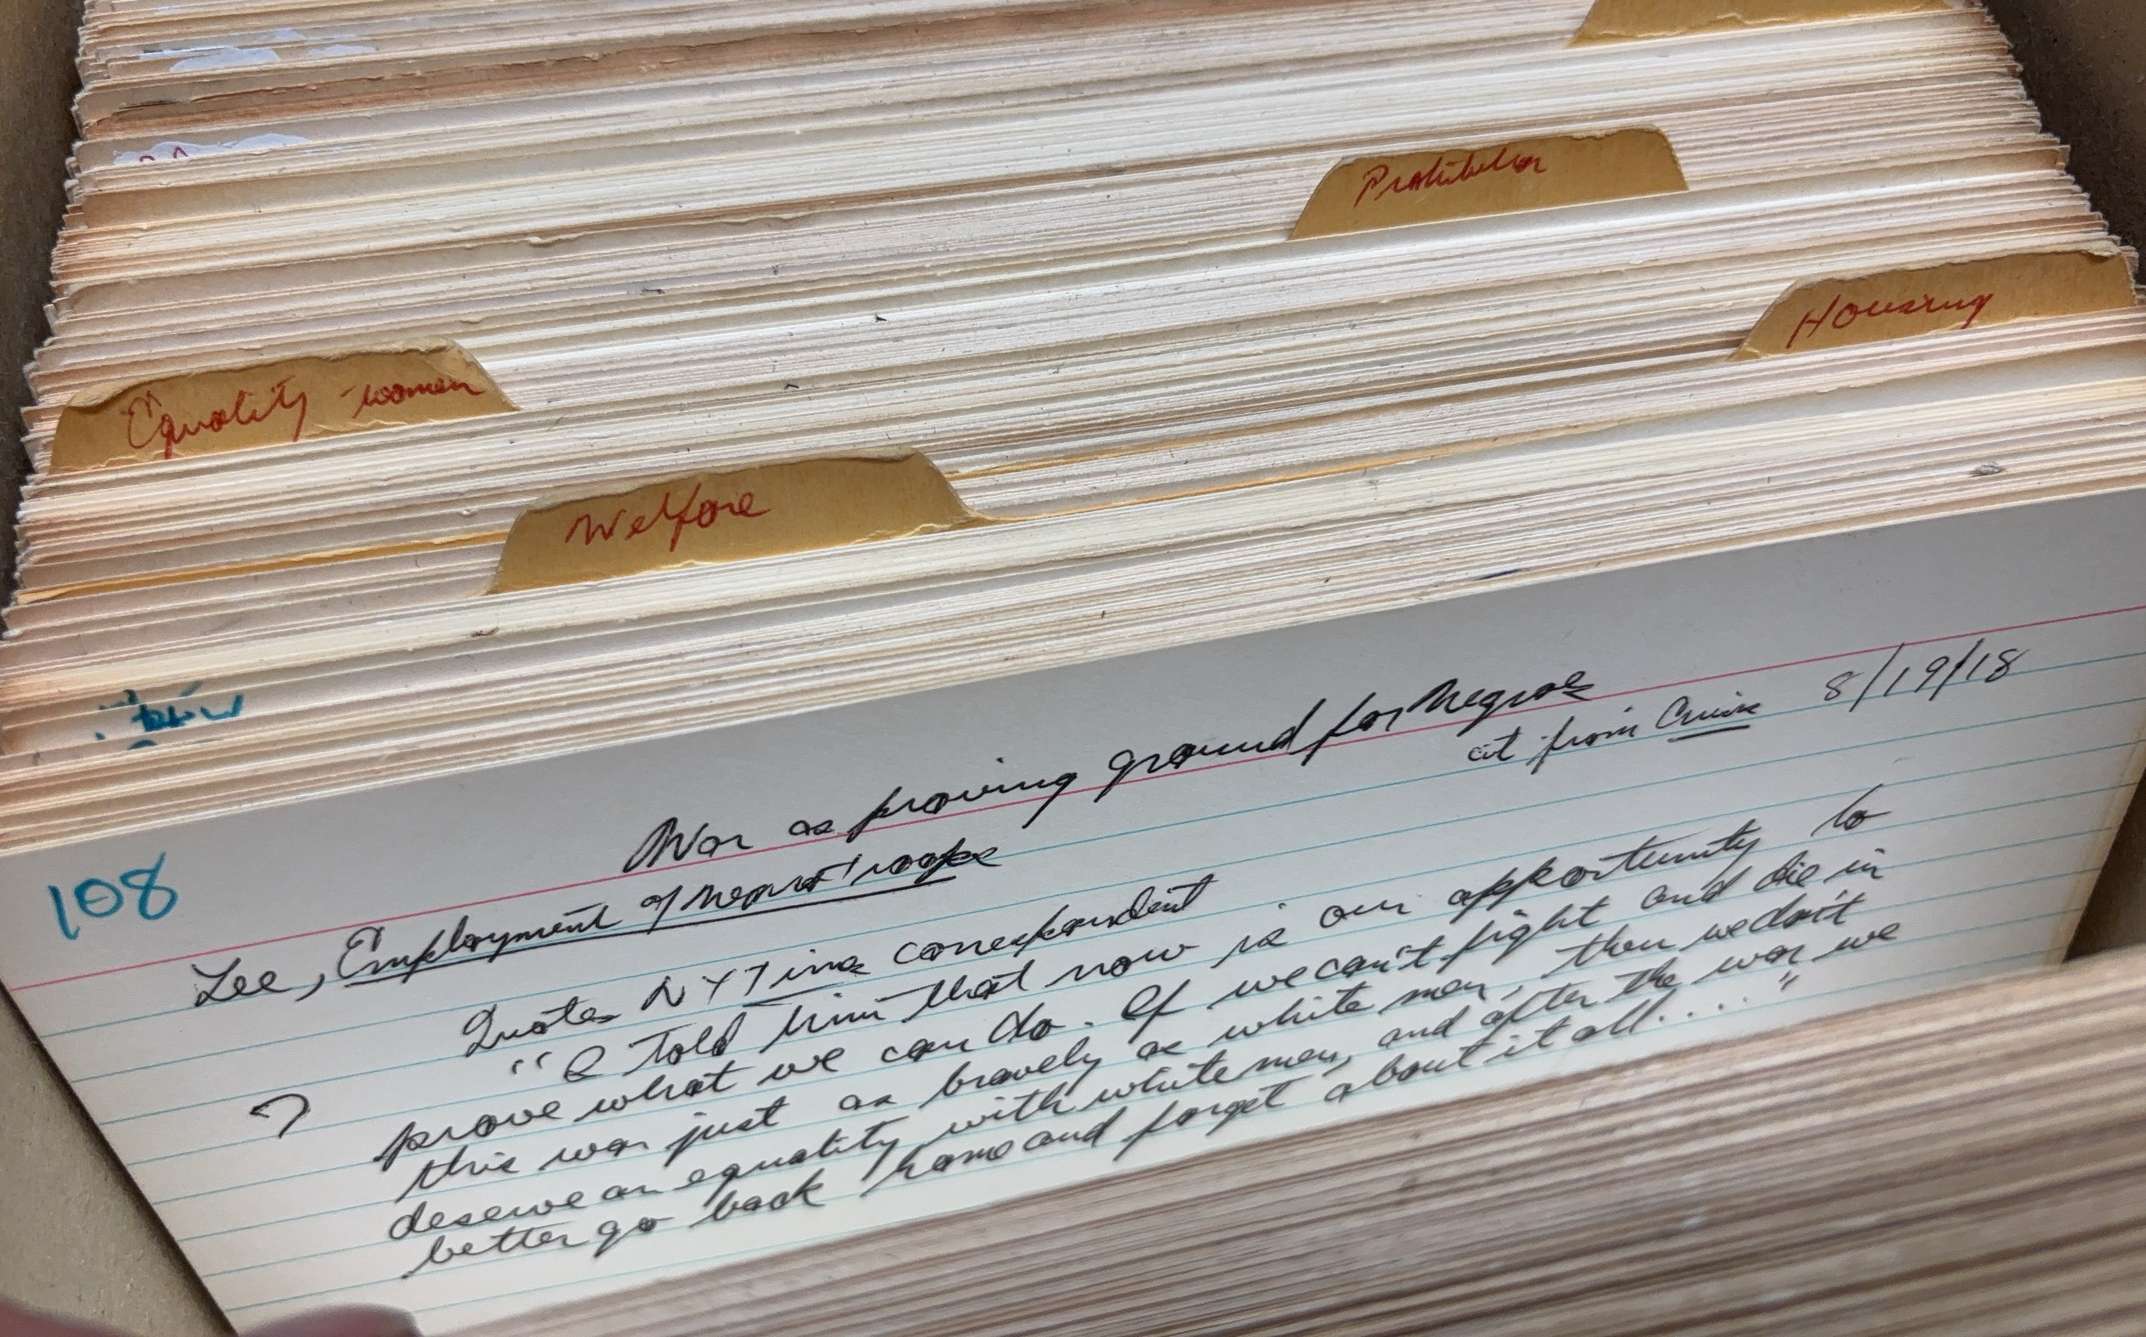 Prohibition
Housing
Equality - women
Welfare
108
War as proving ground for Negroes
Lee, Employment of Negro Troops
from Crisis 8/19/18
Quotes NY Times correspondent
"I told him that now is our opportunity to
prove what we can do. If we can't fight and die in
this war just as bravely as white men, then we don't
deserve an equality with white men, and after the war we
better go back home and forget about it all...."
?